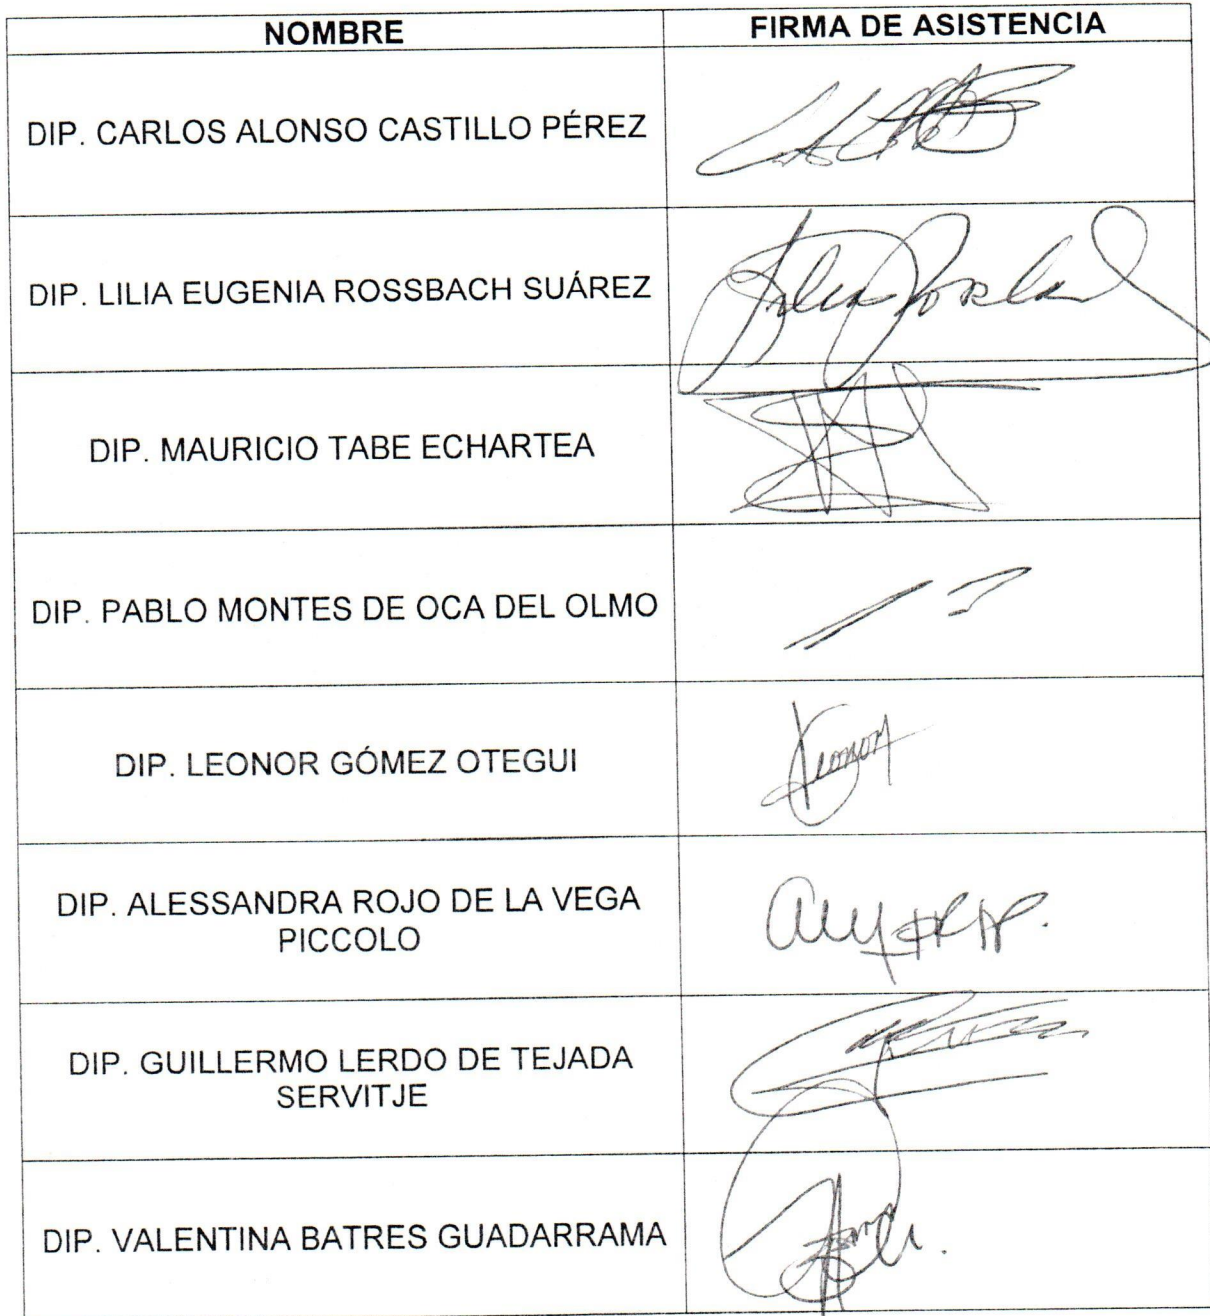 NOMBRE FIRMA DE ASISTENCIA
DIP. CARLOS ALONSO CASTILLO PÉREZ
DIP. LILIA EUGENIA ROSSBACH SUÁREZ
DIP. MAURICIO TABE ECHARTEA
DIP. PABLO MONTES DE OCA DEL OLMO
DIP. LEONOR GÓMEZ OTEGUI
Leonor
DIP. ALESSANDRA ROJO DE LA VEGA
PICCOLO
DIP. GUILLERMO LERDO DE TEJADA
SERVITJE
DIP. VALENTINA BATRES GUADARRAMA